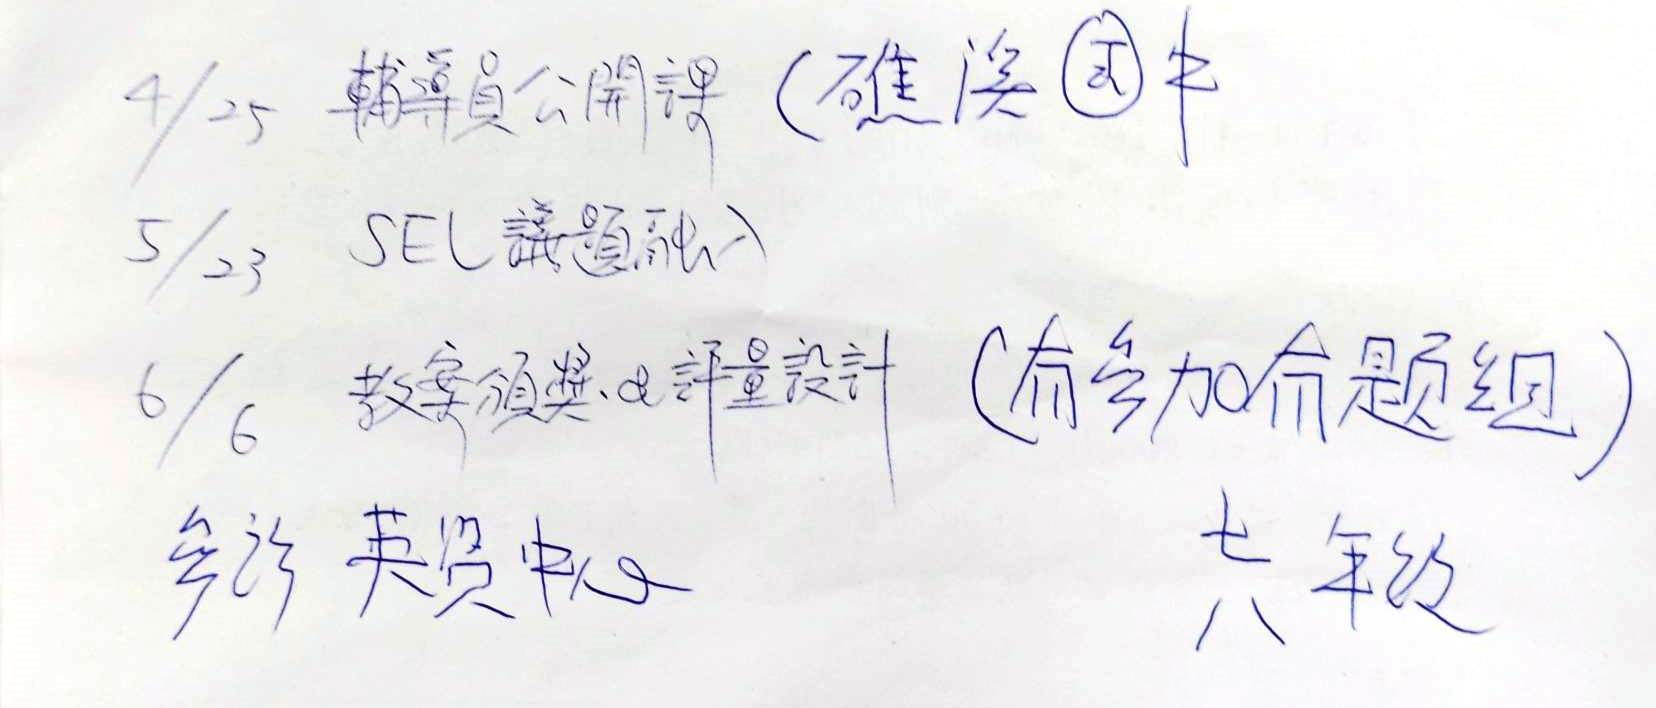 4/25 輔導員公開課 (礁溪國中
5/23 SEL議題融入
6/6 教案頒獎.&評量設計 (命參加命題組)
參訪 英資中心 七八年級